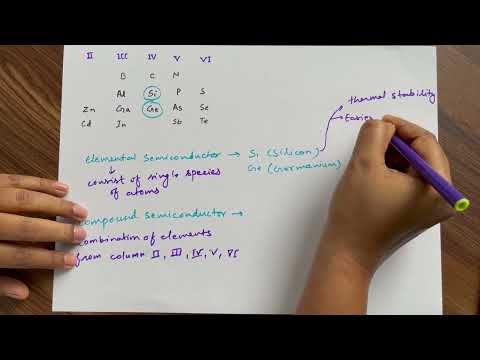 II III IV V VI
B C N
Al Si P S
Zn Ga Ge As Se
Cd In Sb Te
thermal stability
Easier
elemental semiconductor → Si (Silicon)
consist of single species Ge (Germanium)
of atoms
compound semiconductor →
combination of elements
from column II, III, IV, V, VI